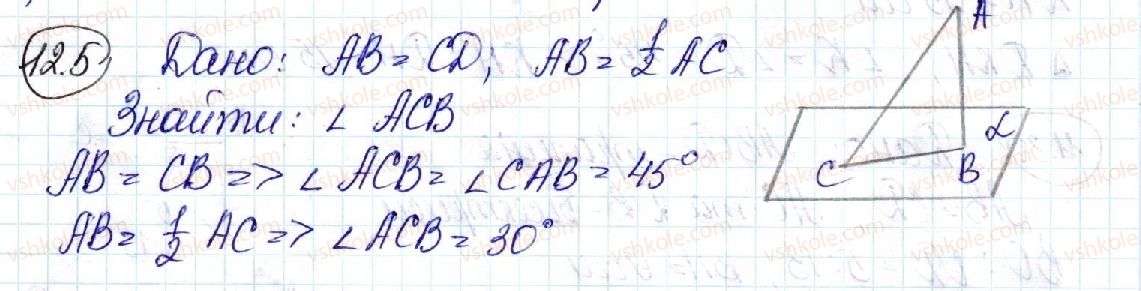 12.5 Дано: AB = CD; AB = 1/2 AC
Знайти: ∠ ACB
AB = CB => ∠ ACB = ∠ CAB = 45°
AB = 1/2 AC => ∠ ACB = 30°
A
α
C
B